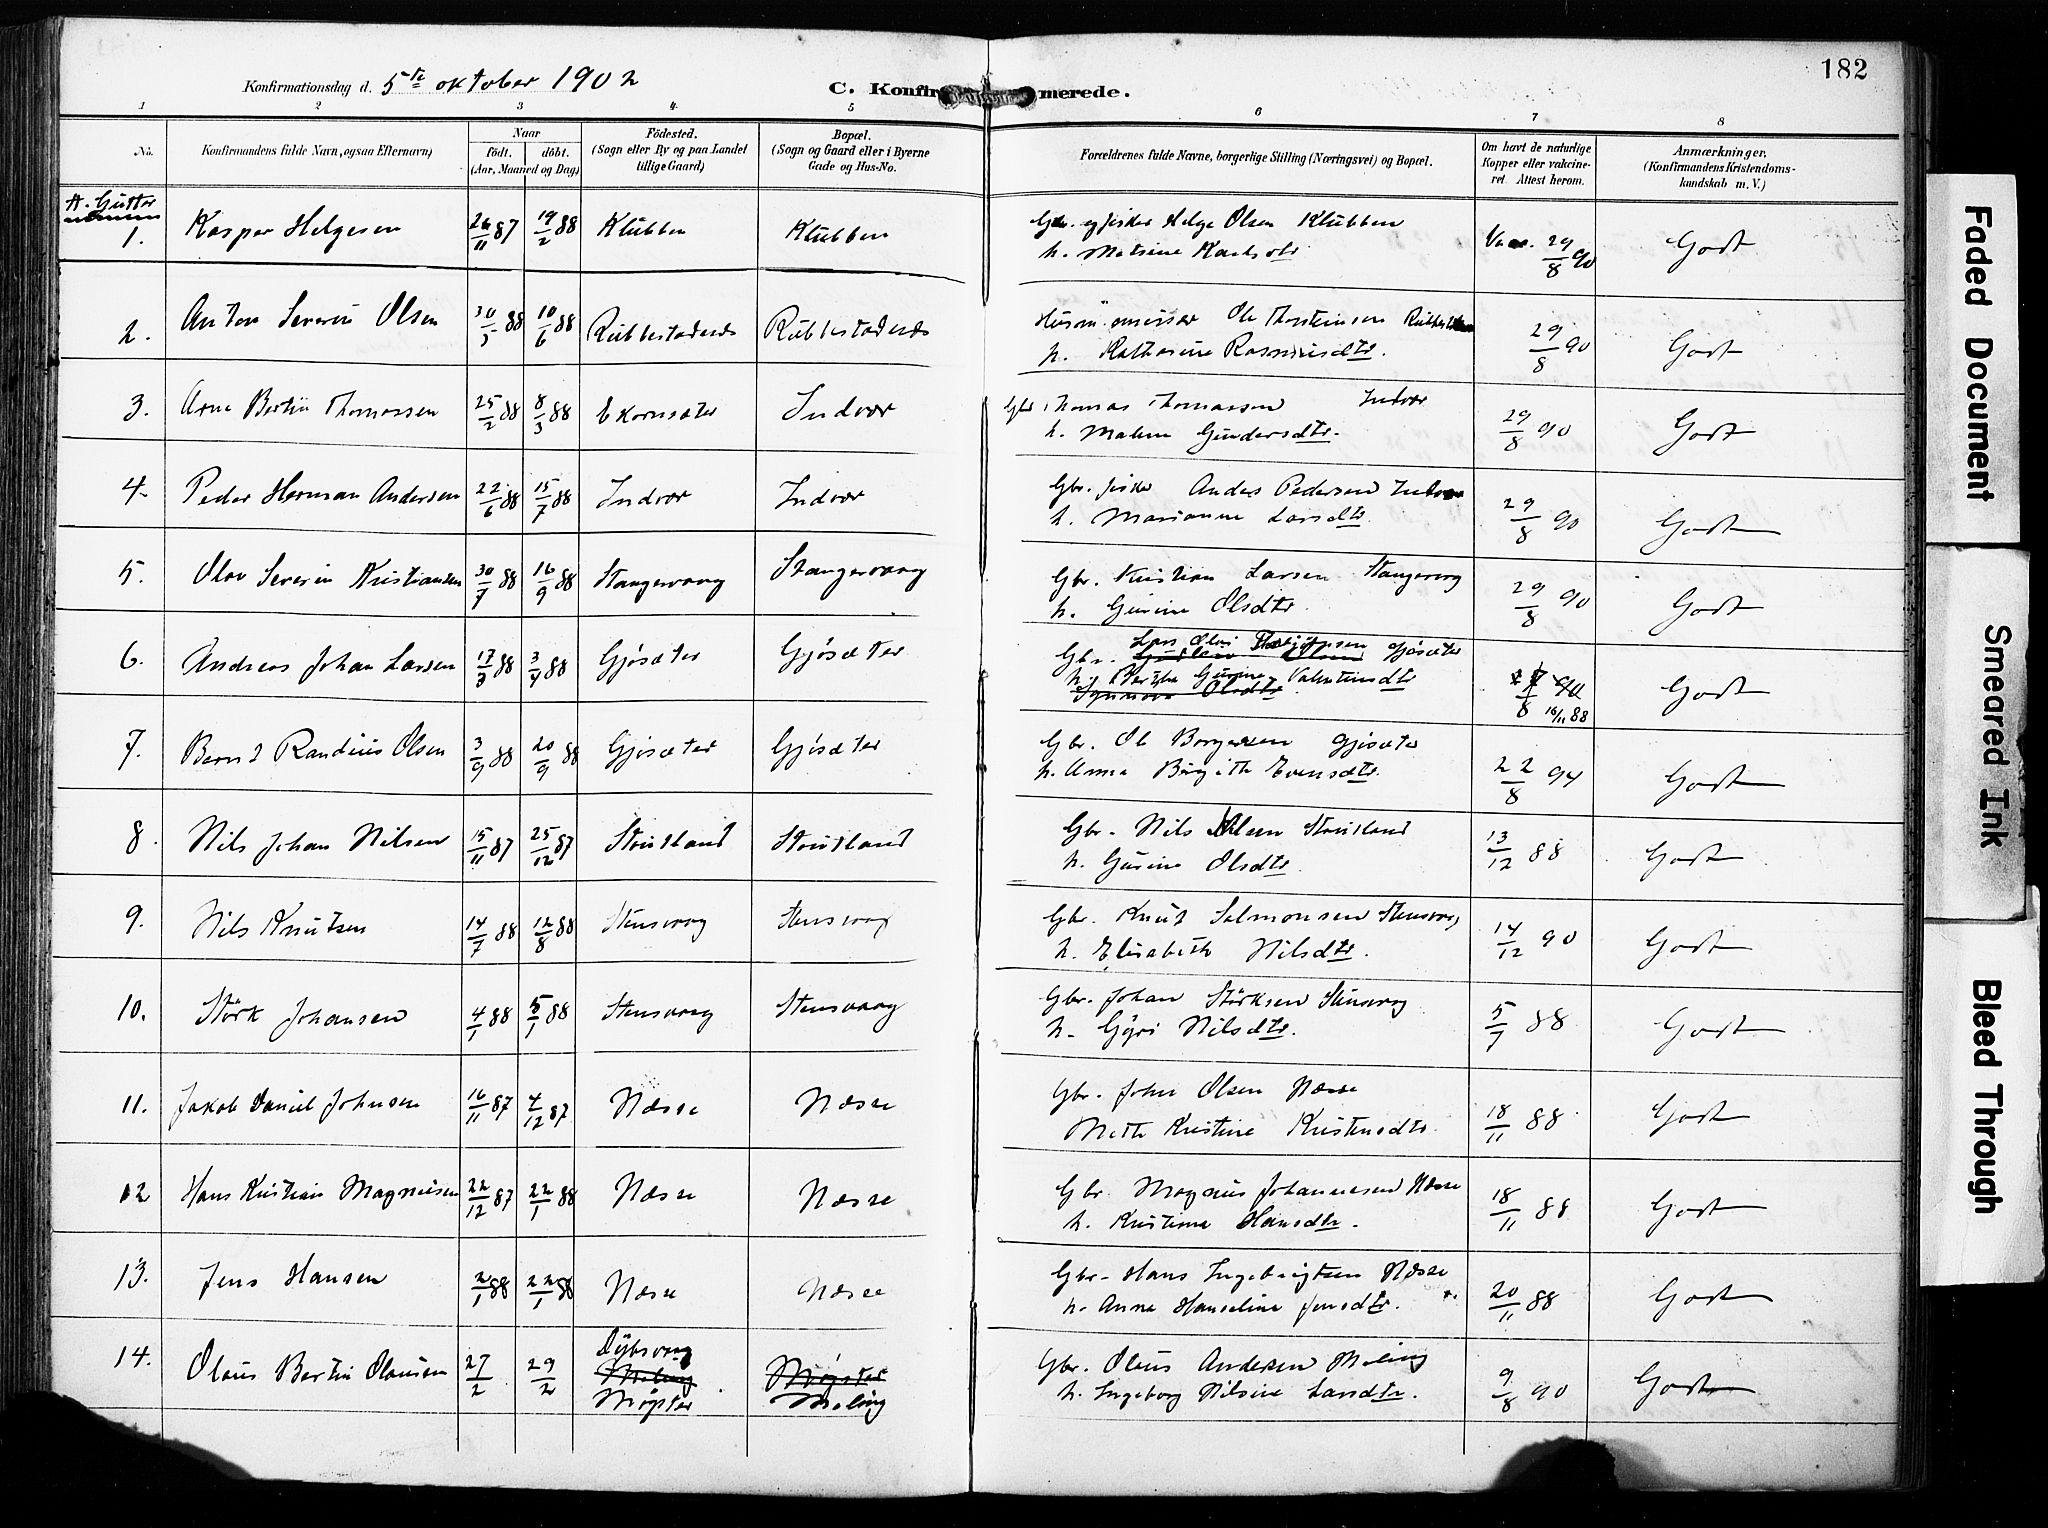 182
Konfirmationsdag d. 5te oktober 1902
C. Konfir merede.
1 2 3 4 5 6 7 8
No. Konfirmandens fulde Navn, ogsaa Efternavn) Naar födt. döbt. (Aar, Maaned og Dag) Födested. (Sogn eller By og paa Landet tillige Gaard) Bopæl. (Sogn og Gaard eller i Byerne Gade og Hus-No. Forældrenes fulde Navne, borgerlige Stilling (Næringsvei) og Bopæl. Om havt de naturlige Kopper eller vakcineret. Attest herom. Anmærkninger. (Konfirmandens Kristendomskundskab m. V.)
A. Gutter
1. Kasper Helgesen 26/11 87 19/2 88 Klubben Klubben Gbr. og fisker Helge Olsen Klubben
h. Matsine 29/8 90 Godt
2. Anton Severin Olsen 30/5 88 10/6 88 Rubbestadnes Rubbestadnes Ole Thorsteinsen
h. Katharine Rasmusdtr. 29/8 90 Godt
3. Arne Bertin Thomassen 25/2 88 8/3 88 Ekornsæter Indvær Gbr. Thomas Thomassen Indvær
h. Malene Gundersdtr. 29/8 90 Godt
4. Peder Herman Andersen 22/6 88 15/7 88 Indvær Indvær Gbr. fisker Anders Pedersen Indvær
h. Marianne Larsdtr. 29/8 90 Godt
5. Olav Severin Kristiansen 30/7 88 16/9 88 Stangervaag Stangervaag Gbr. Kristian Larsen Stangervog
h. Gurine Olsdtr. 29/8 90 Godt
6. Andreas Johan Larsen 17/3 88 3/4 88 Gjösæter Gjösæter Gbr. Lars Olai Torbjörnsen Gjösæter
h. Bertha Gurine Valentinsdtr 16/11 88 Godt
Synnöva Olsdtr
7. Bernt Randius Olsen 3/9 88 20/9 88 Gjösæter Gjösæter Gbr. Ole Borgersen Gjösæter
h. Anna Birgithe Evensdtr. 22/8 94 Godt
8. Nils Johan Nilsen 15/11 87 25/12 87 Stoutland Stoutland Gbr. Nils Olsen Stoutland
h. Gurine Olsdtr. 13/12 88 Godt
9. Nils Knutsen 14/7 88 12/8 88 Stensvaag Stensvaag Gbr. Knut Salmonsen Stensvog
h. Elisabeth Nilsdtr. 14/12 90 Godt
10. Störk Johansen 4/1 88 5/1 88 Stensvaag Stensvaag Gbr. Johan Störksen Stensvog
h. Guri Nilsdtr. 5/7 88 Godt
11. Jakob Daniel Johnsen 16/11 87 4/12 87 Næsse Næsse Gbr. John Olsen Næsse
Mette Kristine Kristensdtr 18/11 88 Godt
12 Hans Kristian Magnusen 22/12 87 22/1 88 Næsse Næsse Gbr. Magnus Johannesen Næsse
h. Kristina Hansdtr. 18/11 88 Godt
13. Jens Hansen 2/1 88 22/1 88 Næsse Næsse Gbr. Hans Ingebrigtsen Næsse
h. Anne Hanseline Jensdtr. 20/11 88 Godt
14. Olaus Bertin Olausen 27/2 29/2 Dybsvog Meling Møgster Møgster Meling Gbr. Olaus Andersen Meling
h. Ingeborg Nilsine Larsdtr. 9/8 90 Godt
Faded Document
Smeared Ink
Bleed Through